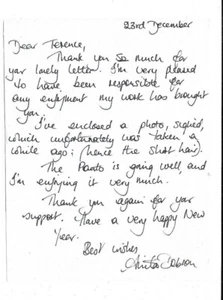 23rd December
Dear Terence,
Thank you so much for
your lovely letter. I'm very pleased
to have been responsible for
any enjoyment my work has brought
you.
I've enclosed a photo, signed,
which unfortunately was taken a
while ago; (hence the short hair).
The Panto is going well, and
I'm enjoying it very much.
Thank you again for your
support. Have a very happy New
Year.
Best wishes
Anita Dobson